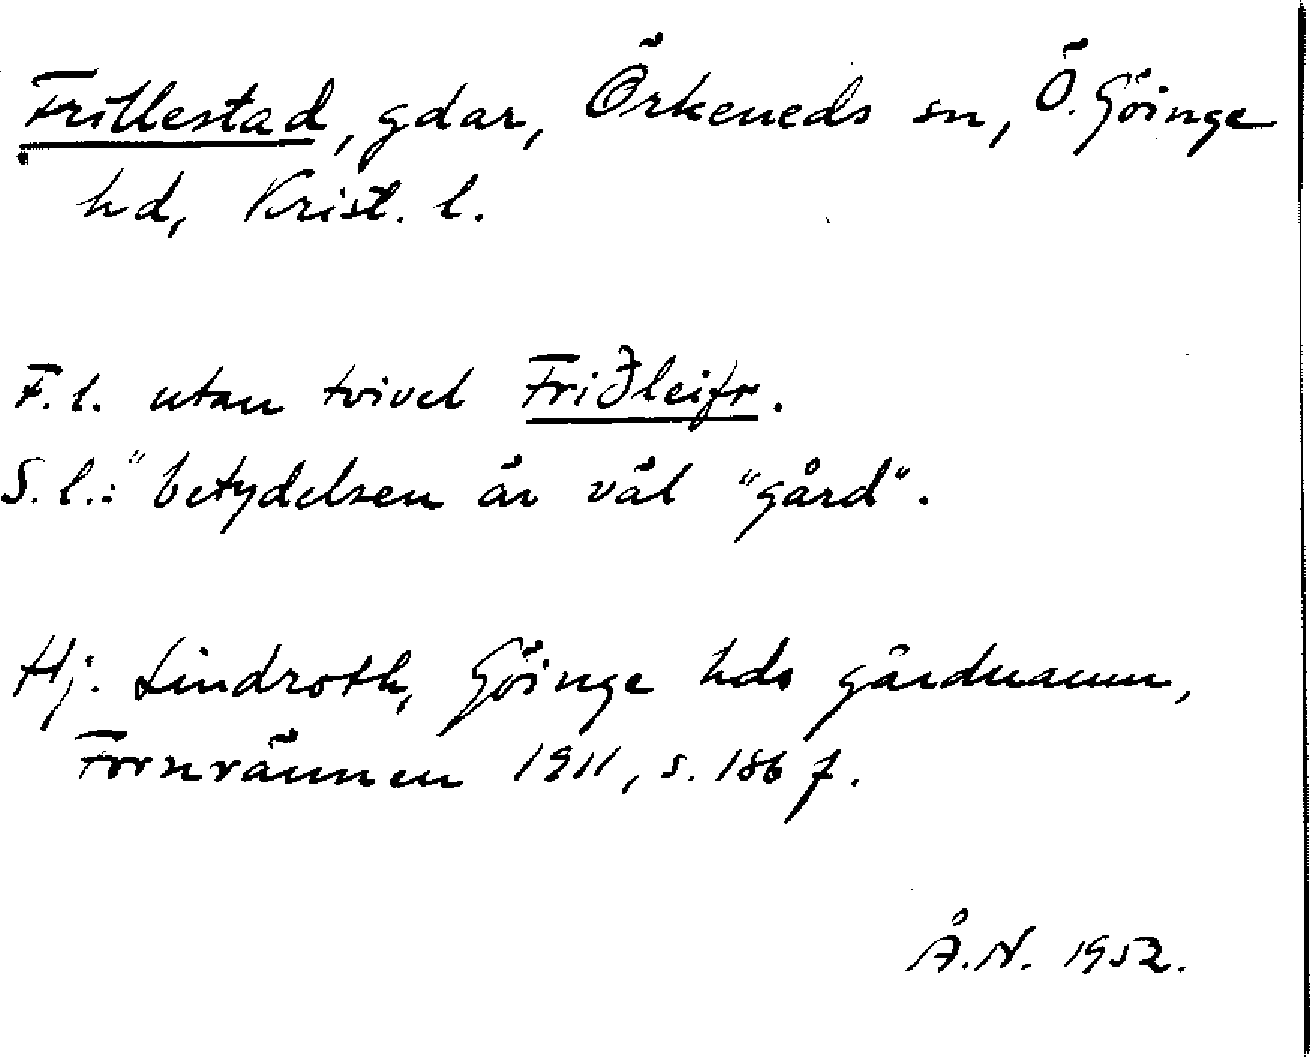 Frillestad, gdar, Örkeneds sn, Ö. Göinge
hd, Krist. l.
F.l. utan tvivel Friðleifr.
S.l.:" betydelsen är väl "gård".
Hj. Lindroth, Göinge hds gårdnamn,
Fornvännen 1911, s. 186 f.
Å.N. 1952.